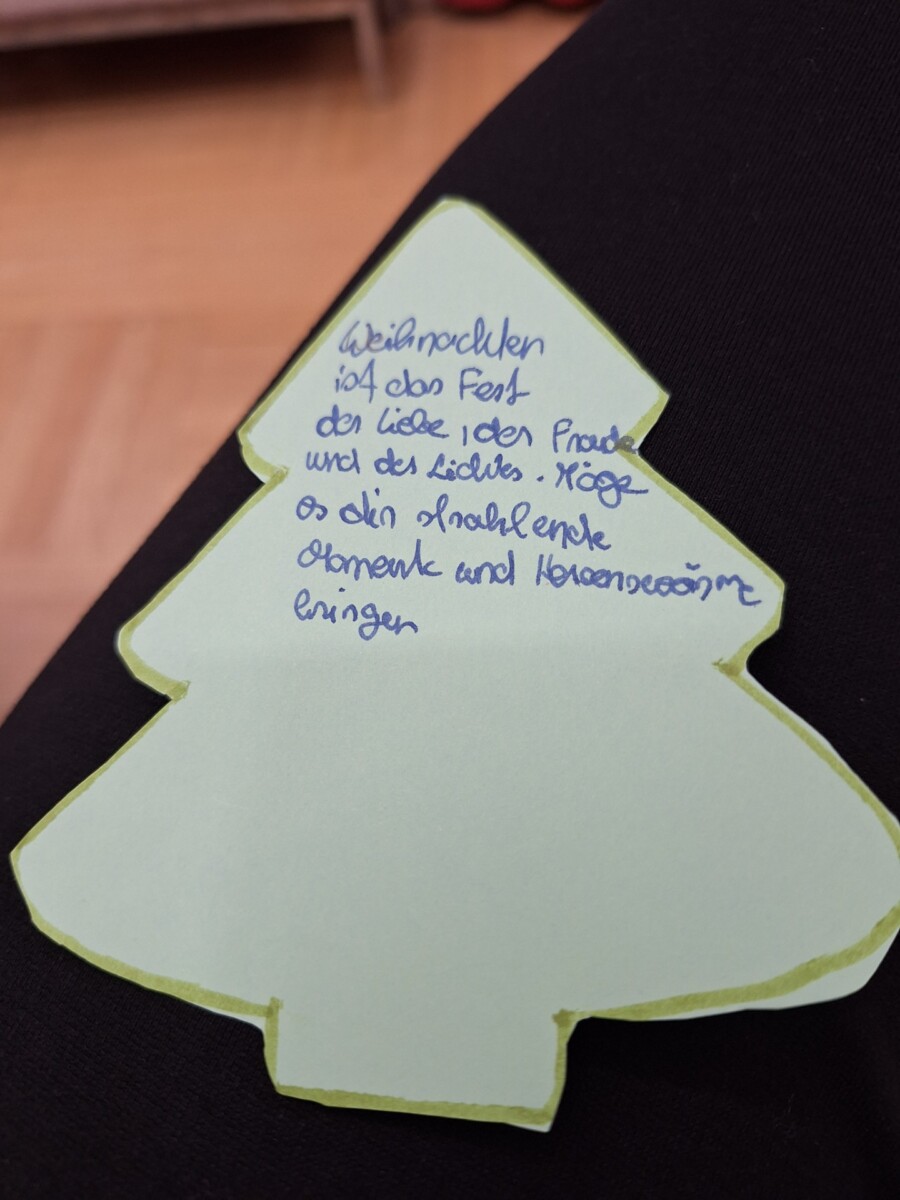 Weihnachten
ist das Fest
der Liebe, der Freude
und des Lichtes. Möge
es dir strahlende
Momente und Herzenswärme
bringen